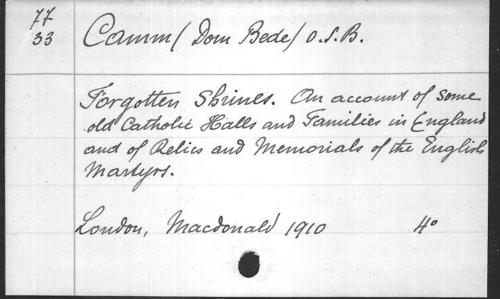 77
33
Camm (Dom Bede) O.S.B.
Forgotten Shrines. An account of some
old Catholic Halls and Families in England
and of Relics and Memorials of the English
Martyrs.
London, Macdonald 1910 4°